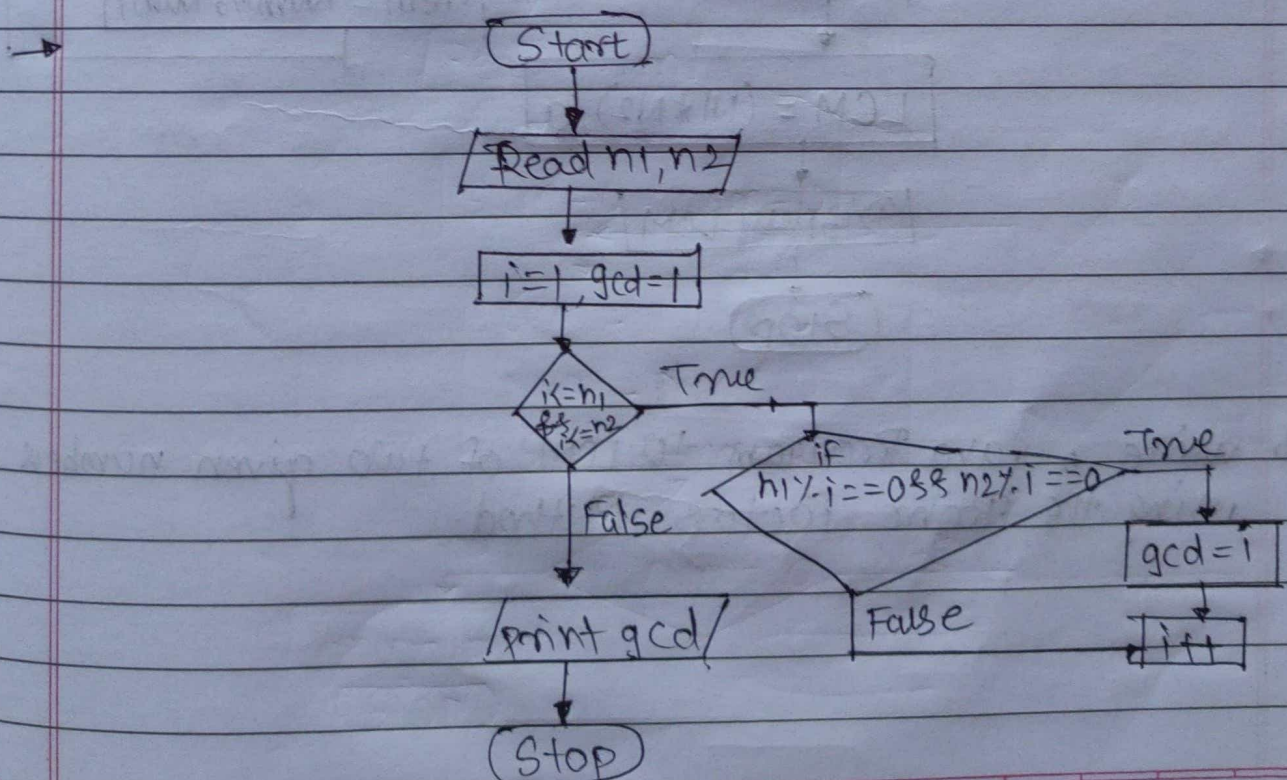 Start
Read n1, n2
i=1, gcd=1
i<=n1
&&
i<=n2
True
if
n1%i==0 && n2%i==0
True
False
gcd=i
print gcd
False
i++
Stop